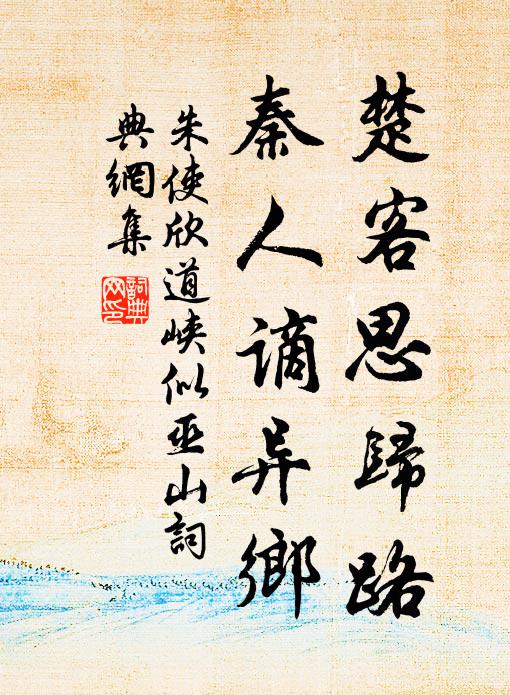 楚客思歸路
秦人謫异鄉
朱使欣道峽似巫山詞
典網集
詞典
网印